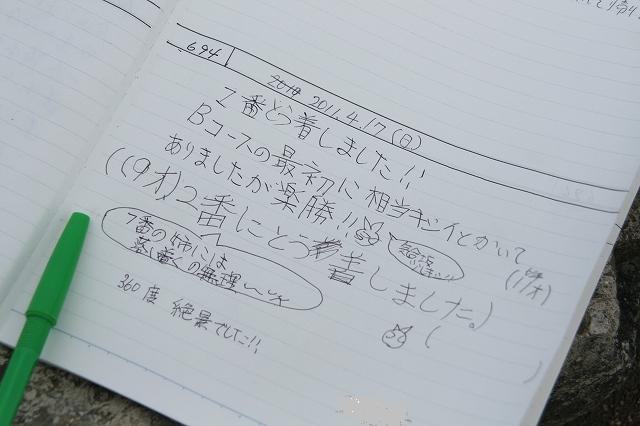 694
2011.4.17(日)
2番とう着しました!!
Bコースの最初に相当キツイとかいて
ありましたが楽勝!!
(17才)
((9才)2番にとう着しました。)
7番の姉には
落ち着くの無理
360度 絶景でした!!